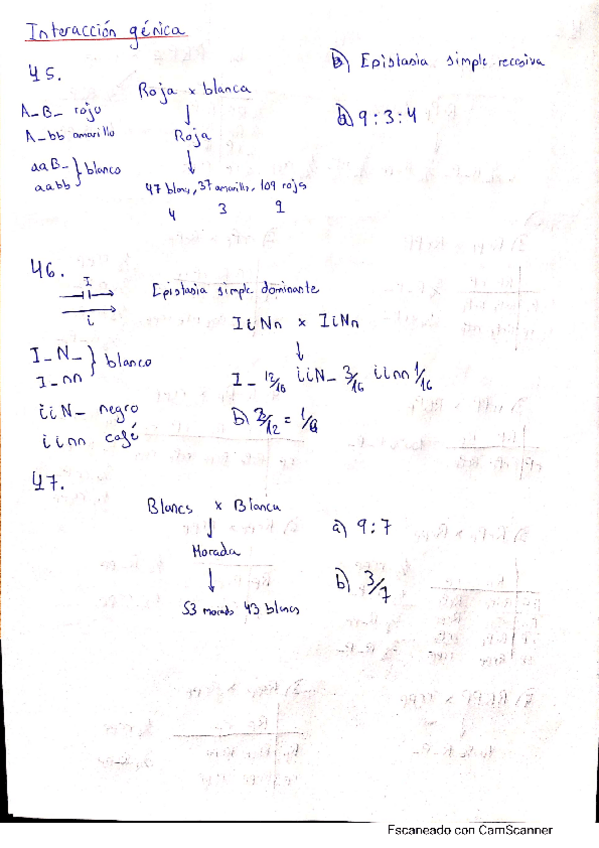 Interacción génica
45.
Roja x blanca
Roja
47 blancs, 37 amarillo, 109 roja
4 3 9
A_B_ rojo
A_bb amarillo
aaB_
aabb } blanco
b) Epistasia simple recesiva
a) 9:3:4
46.
I
i
Epistasia simple dominante
IiNn x IiNn
I_ 12/16 iiN_ 3/16 iinn 1/16
b) 2/12 = 1/6
I_N_
I_nn } blanco
iiN_ negro
iinn café
47.
Blancs x Blanca
Morada
53 morado 43 blancs
a) 9:7
b) 3/7
Escaneado con CamScanner